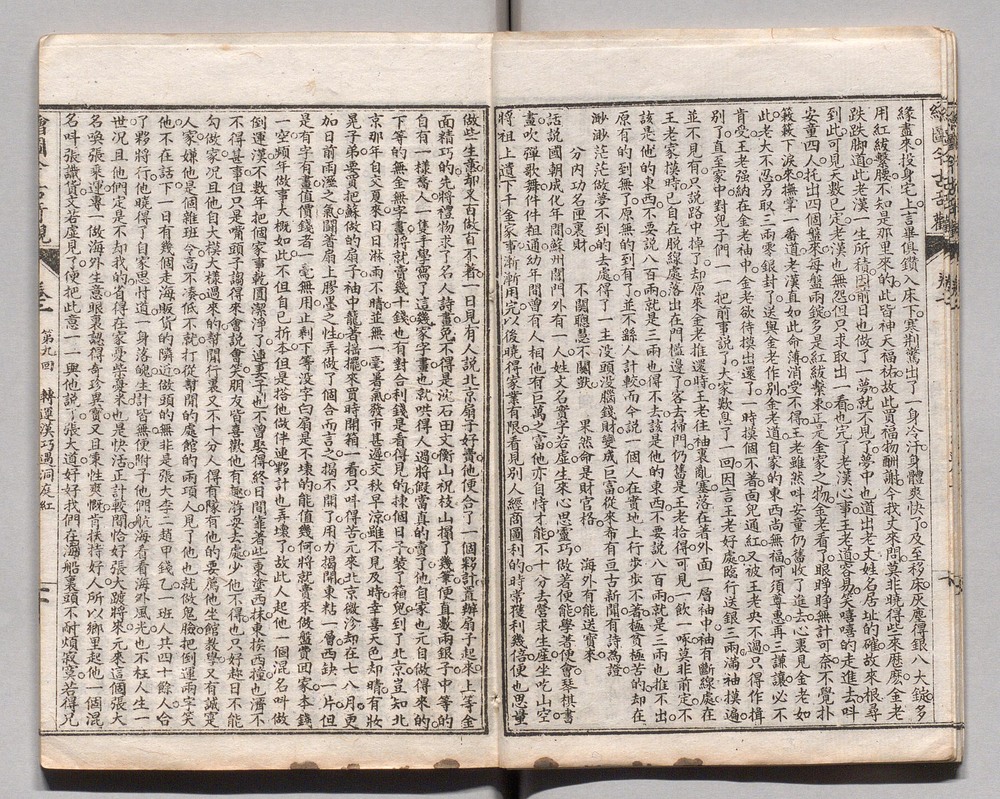 緣盡來投身宅上言畢俱鑽入床下寒荆驚出了一身冷汗身體爽快了及至移床灰塵得銀八大錠多
用紅絨繫腰不知是那里來的此皆神天福祐故此買福物酬謝今我丈來問莫非曉得些來歷麽金老
跌跌脚道此老漢一生所積因前日也做了一夢就不見了夢中也道出老丈姓名居址的確故來根尋
到此可見天數已定老漢也無怨但只求取出一看也完了老漢心事王老道容易笑嘻嘻的走進去叫
安童四人托出四個盤來每盤兩錠多是紅絨繫束正是金家之物金老看了眼睜睜無計可奈不覺扑
簌簌下淚來撫掌一番道老漢直如此命薄消受不得王老雖然叫安童仍舊收了進去心裏見金老如
此老大不忍另取三兩零銀封了送與金老作别金老道自家的東西尚無福何須尊惠再三謙讓必不
肯受王老强納在金老袖中金老欲待摸出還了一時摸個不着面兒通紅又被王老央不過只得作揖
別了直至家中對兒子們一一把前事説了大家歎息了一回因言王老好處臨行送銀三兩滿袖摸遍
並不見有只説路中掉了却原來金老推遜時王老往袖裏亂塞落在着外面一層袖中袖有斷線處在
王老家摸時已自在脱線處落出在門檻邊了客去掃門仍舊是王老拾得可見一飲一啄莫非前定不
該是他的東西不要説八百兩就是三兩也得不去該是他的東西不要説八百兩就是三兩也推不出
原有的到無了原無的到有了並不繇人計較而今説一個人在實地上行步步不着極貧極苦的却在
渺渺茫茫做夢不到的去處得了一主没頭没腦錢財變成巨富從來希有亘古新聞有詩爲證
分内功名匣裏財　不關聰慧不關獃　果然命是財官格　海外有能送寳來
話説國朝成化年間蘇州閶門外有一人姓文名實字若虛生來心思靈巧做着便能學著便會琴棋書
畫吹彈歌舞件件粗通幼年間曾有人相他有巨萬之富他亦自恃才能不十分去營求生產坐吃山空
將祖上遺下千金家事漸漸用完以後曉得家業有限看見別人經商圖利的時常獲利幾倍便也思量
做些生意却又百做百不着一日見有人説北京扇子好賣他便合了一個夥計置辦扇子起來上等金
面精巧的先將禮物求了名人詩畫免不得是沈石田文衡山祝枝山搨了幾筆便直數兩銀子中等的
自有一樣喬人一隻手學寫了這幾家字畫也就哄得人過將假當真的賣了他自家也兀自做得來的
下等的無金無字畫將就賣幾十錢也有對合利錢是看得見的揀個日子裝了箱兒到了北京豈知北
京那年自交夏來日日淋雨不晴並無一毫暑氣發市甚遲交秋早涼雖不見及時幸喜天色却晴有妝
晃子弟要買把蘇做的扇子袖中籠着摇擺來買時開箱一看只叫得苦元來北京黴沴却在七八月更
加日前雨溼之氣鬭着扇上膠墨之性弄做了個合而言之揭不開了用力揭開東粘一層西缺一片但
是有字有畫值價錢者一毫無用止剩下等没字白扇是不壞的能值幾何將就賣來做盤費回家本錢
一空頻年做事大概如此不但自己折本但是搭他做伴連夥計也弄壞了故此人起他一個混名叫做
倒運漢不數年把個家事乾圓潔淨了連妻子也不曾娶得終日間靠著些東塗西抹東挨西撞也濟不
得甚事但只是嘴頭子謅得來會説會笑朋友皆喜歡他有趣將耍去處少他不得也只好趁日不能
勾做家况且他自大模大樣過來的幇閒行裏又不十分入得有隊有他的要薦他坐館教學又有誠實
人家嫌他是個雜班令高不凑低不就打從幇閒的處館的兩項人見了他也就做鬼臉把倒運兩字笑
他不在話下一日有幾個走海販貨的隣近做頭的無非是張大李二趙甲錢乙一班人共四十餘人合
了夥將行他曉得了自家思忖道一身落魄生計皆無便附了他們航海看看海外風光也不枉人生一
世况且他們定是不却我的省得在家憂柴憂米也是快活正計較間恰好張大踱將來元來這個張大
名喚張乘運專一做海外生意眼裏認得奇珍異寳又且秉性爽慨肯扶持好人所以鄉里起他一個混
名叫張識貨文若虛見了便把此意一一與他説了張大道好好我們在海船裏頭不耐煩寂寞若得兄
卷二　第九回　轉運漢巧遇洞庭紅